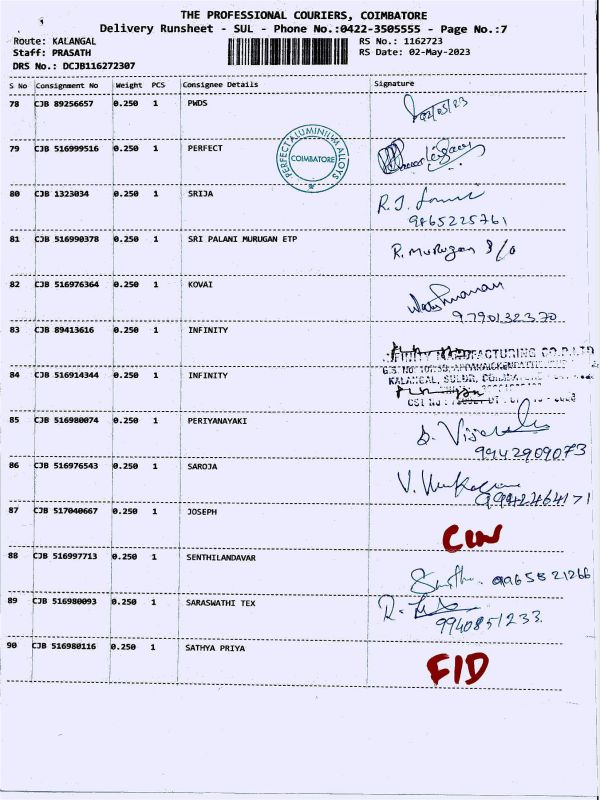 THE PROFESSIONAL COURIERS, COIMBATORE
Delivery Runsheet - SUL - Phone No.:0422-3505555 - Page No.:7
Route: KALANGAL RS No.: 1162723
Staff: PRASATH RS Date: 02-May-2023
DRS No.: DCJB116272307
S No Consignment No Weight PCS Consignee Details Signature
78 CJB 89256657 0.250 1 PWDS 02/05/23
79 CJB 516999516 0.250 1 PERFECT
PERFECT ALUMINIUM ALLOYS
COIMBATORE
80 CJB 1323034 0.250 1 SRIJA R.J.
9865225761
81 CJB 516990378 0.250 1 SRI PALANI MURUGAN ETP R. Murugan S/o
82 CJB 516976364 0.250 1 KOVAI
9790132370
83 CJB 89413616 0.250 1 INFINITY
INFINITY MANUFACTURING CO.P.LTD
84 CJB 516914344 0.250 1 INFINITY
KALANGAL, SULUR,
85 CJB 516980074 0.250 1 PERIYANAYAKI
9942909073
86 CJB 516976543 0.250 1 SAROJA V.
9942464171
87 CJB 517040667 0.250 1 JOSEPH
88 CJB 516997713 0.250 1 SENTHILANDAVAR
9965821266
89 CJB 516980093 0.250 1 SARASWATHI TEX R.
9940851233.
90 CJB 516980116 0.250 1 SATHYA PRIYA FID